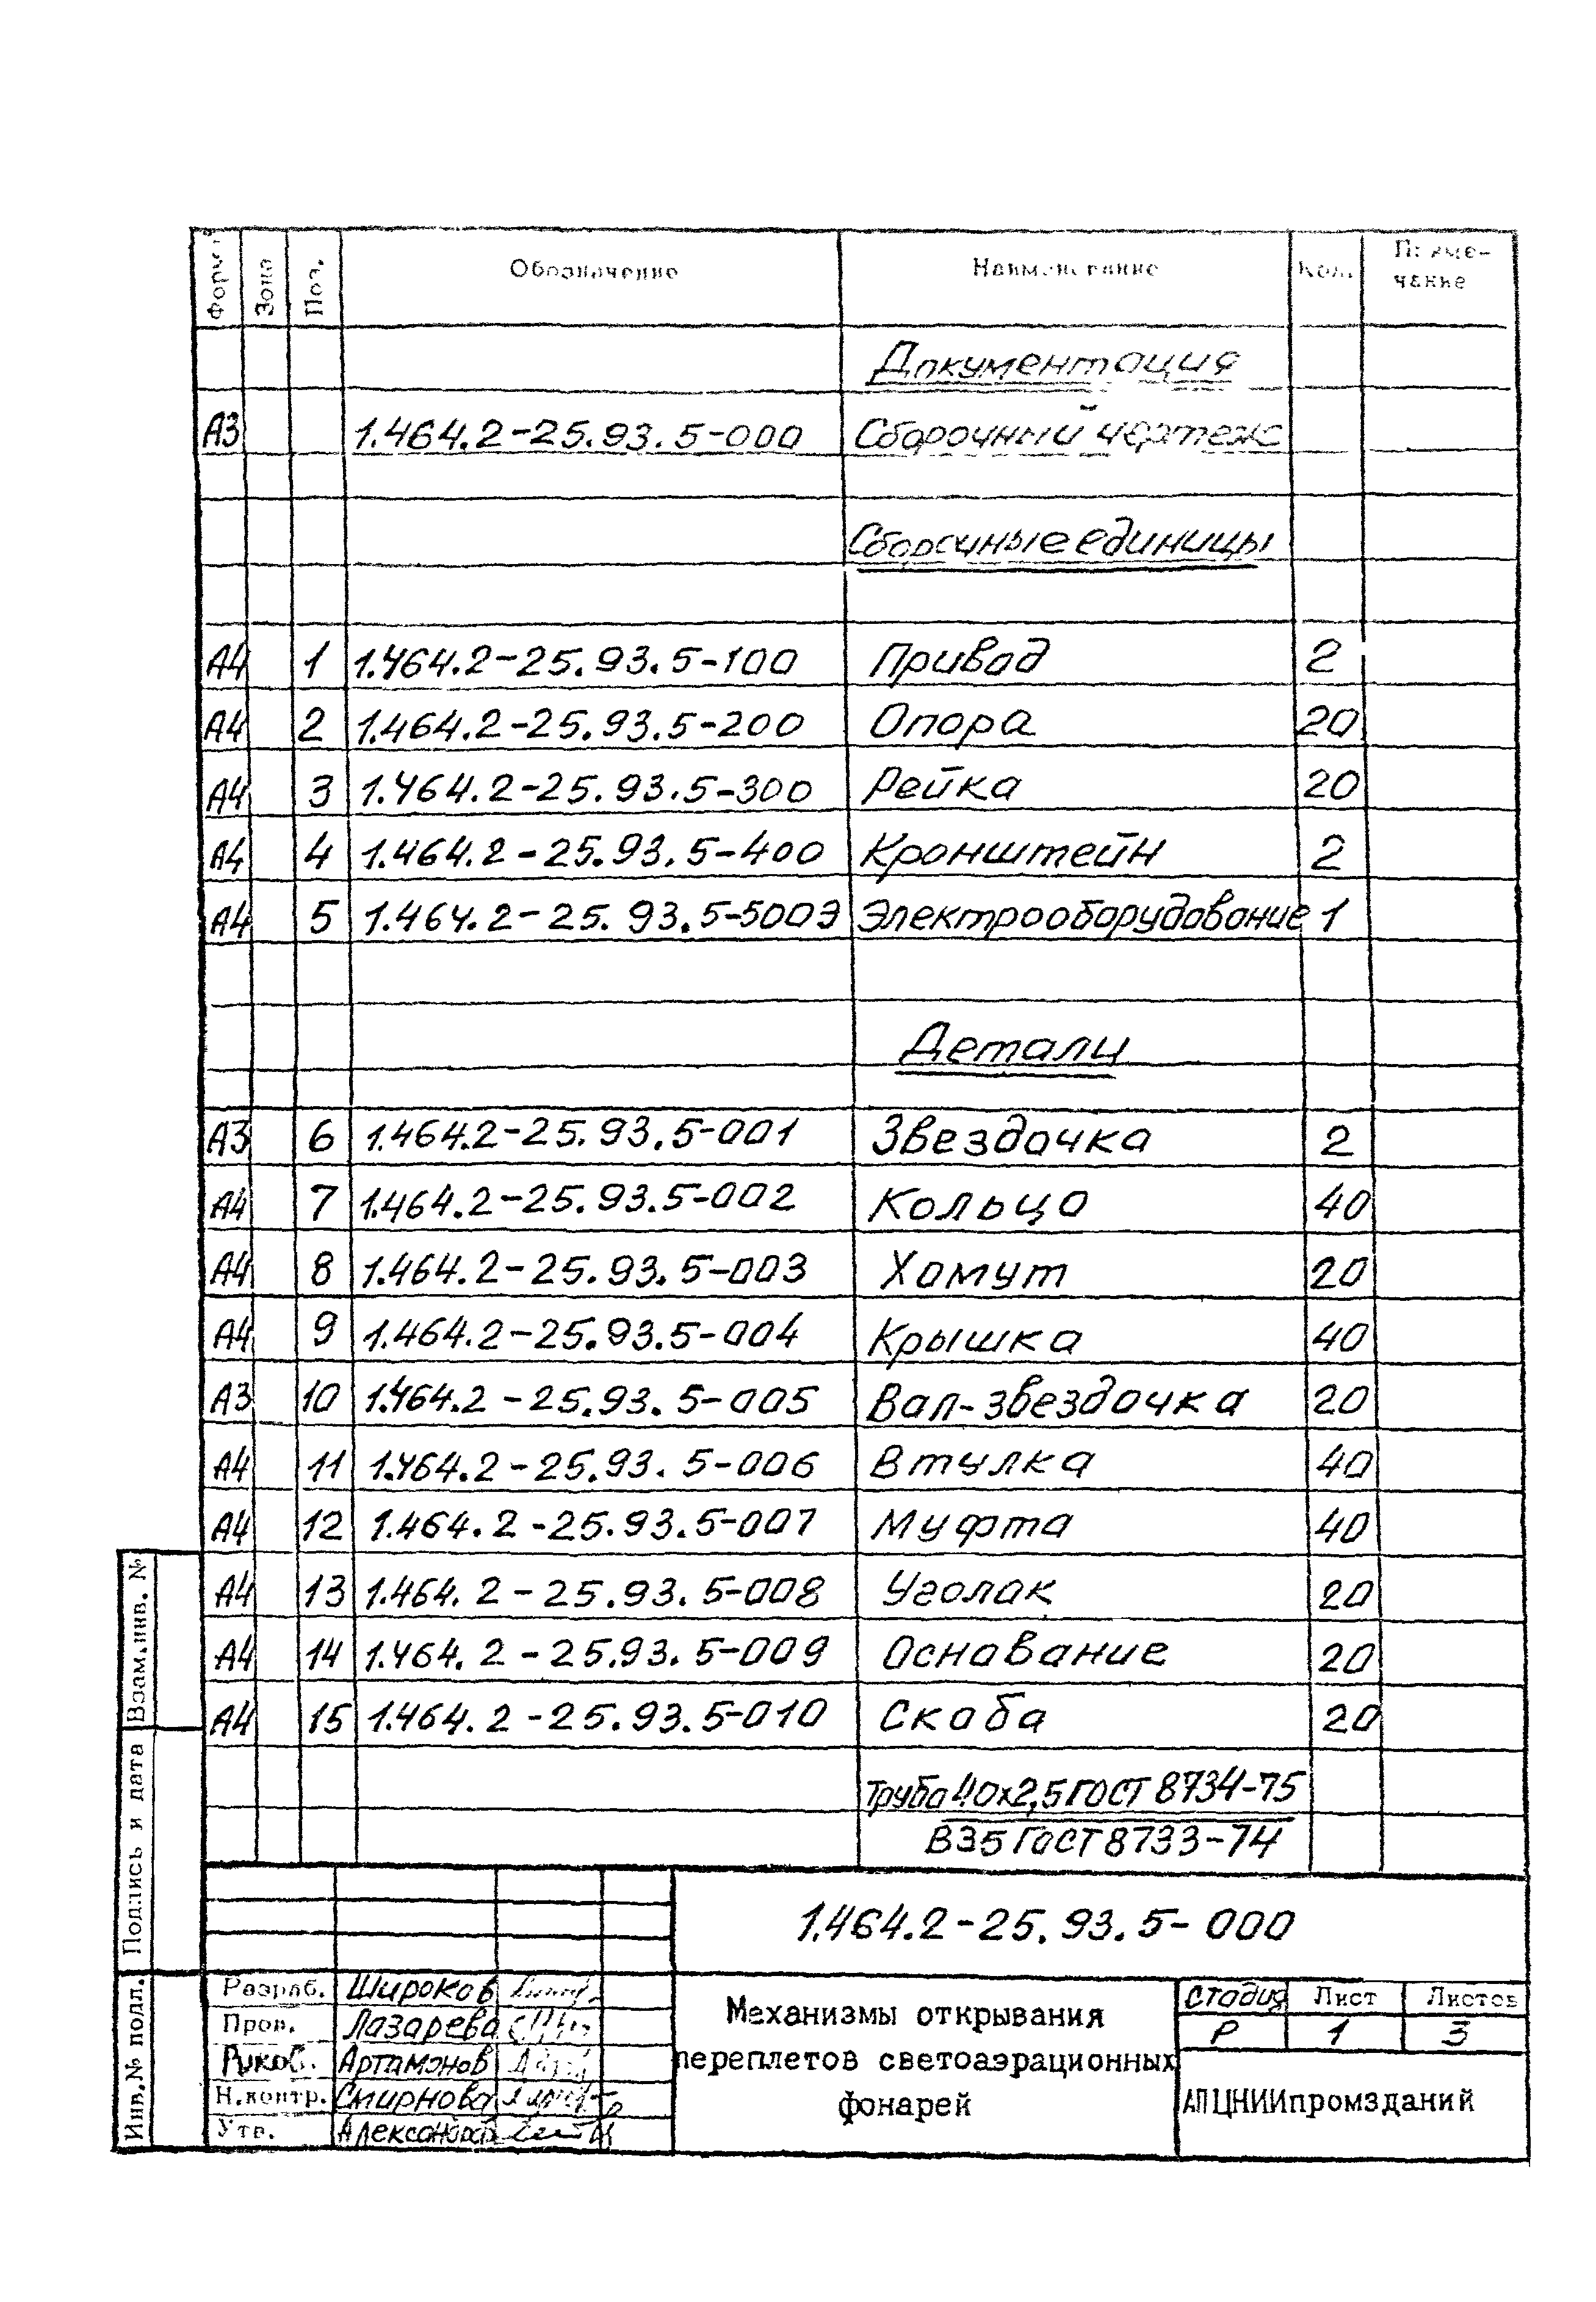 Формат Зона Поз. Обозначение Наименование Кол. Приме-
чание
Документация
А3 1.464.2-25.93.5-000 Сборочный чертеж
Сборочные единицы
А4 1 1.464.2-25.93.5-100 Привод 2
А4 2 1.464.2-25.93.5-200 Опора 20
А4 3 1.464.2-25.93.5-300 Рейка 20
А4 4 1.464.2-25.93.5-400 Кронштейн 2
А4 5 1.464.2-25.93.5-500Э Электрооборудование 1
Детали
А3 6 1.464.2-25.93.5-001 Звездочка 2
А4 7 1.464.2-25.93.5-002 Кольцо 40
А4 8 1.464.2-25.93.5-003 Хомут 20
А4 9 1.464.2-25.93.5-004 Крышка 40
А3 10 1.464.2-25.93.5-005 Вал-звездочка 20
А4 11 1.464.2-25.93.5-006 Втулка 40
А4 12 1.464.2-25.93.5-007 Муфта 40
А4 13 1.464.2-25.93.5-008 Уголок 20
А4 14 1.464.2-25.93.5-009 Основание 20
А4 15 1.464.2-25.93.5-010 Скоба 20
Труба 40х2,5 ГОСТ 8734-75
В35 ГОСТ 8733-74
Взам.инв. №
Подпись и дата
Инв.№ подл.
1.464.2-25.93.5-000
Разраб. Широков
Пров. Лазарева
Руков. Артамонов
Н.контр. Смирнова
Утв.
Механизмы открывания
переплетов светоаэрационных
фонарей
Стадия Лист Листов
Р 1 3
АП ЦНИИпромзданий